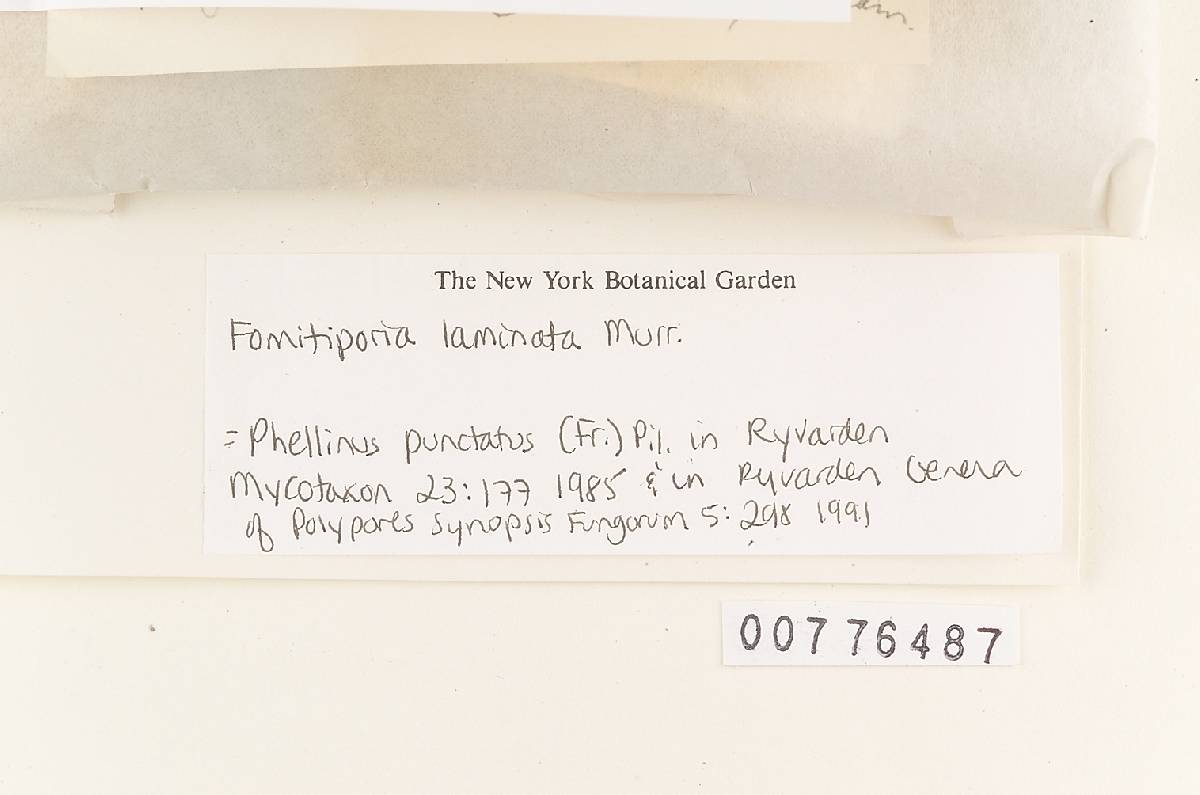 The New York Botanical Garden
Fomitiporia laminata Murr.
= Phellinus punctatus (Fr.) Pil. in Ryvarden
Mycotaxon 23:177 1985 & in Ryvarden Genera
of Polypores Synopsis Fungorum 5: 298 1991
00776487